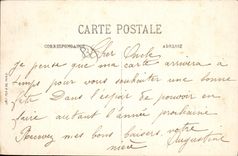 CARTE POSTALE
CORRESPONDANCE ADRESSE
Cher Oncle
Je pense que ma carte arrivera à
temps pour vous souhaiter une bonne
fête Dans l'espoir de pouvoir en
faire autant l'année prochaine
Recevez mes bons baisers. votre
nièce Augustine